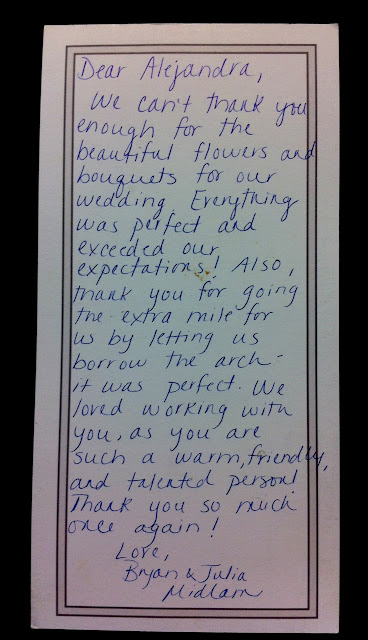 Dear Alejandra,
We can't thank you
enough for the
beautiful flowers and
bouquets for our
wedding. Everything
was perfect and
exceeded our
expectations! Also,
thank you for going
the extra mile for
us by letting us
borrow the arch -
it was perfect. We
loved working with
you, as you are
such a warm, friendly,
and talented person!
Thank you so much
once again!
Love,
Bryan & Julia
Midlam